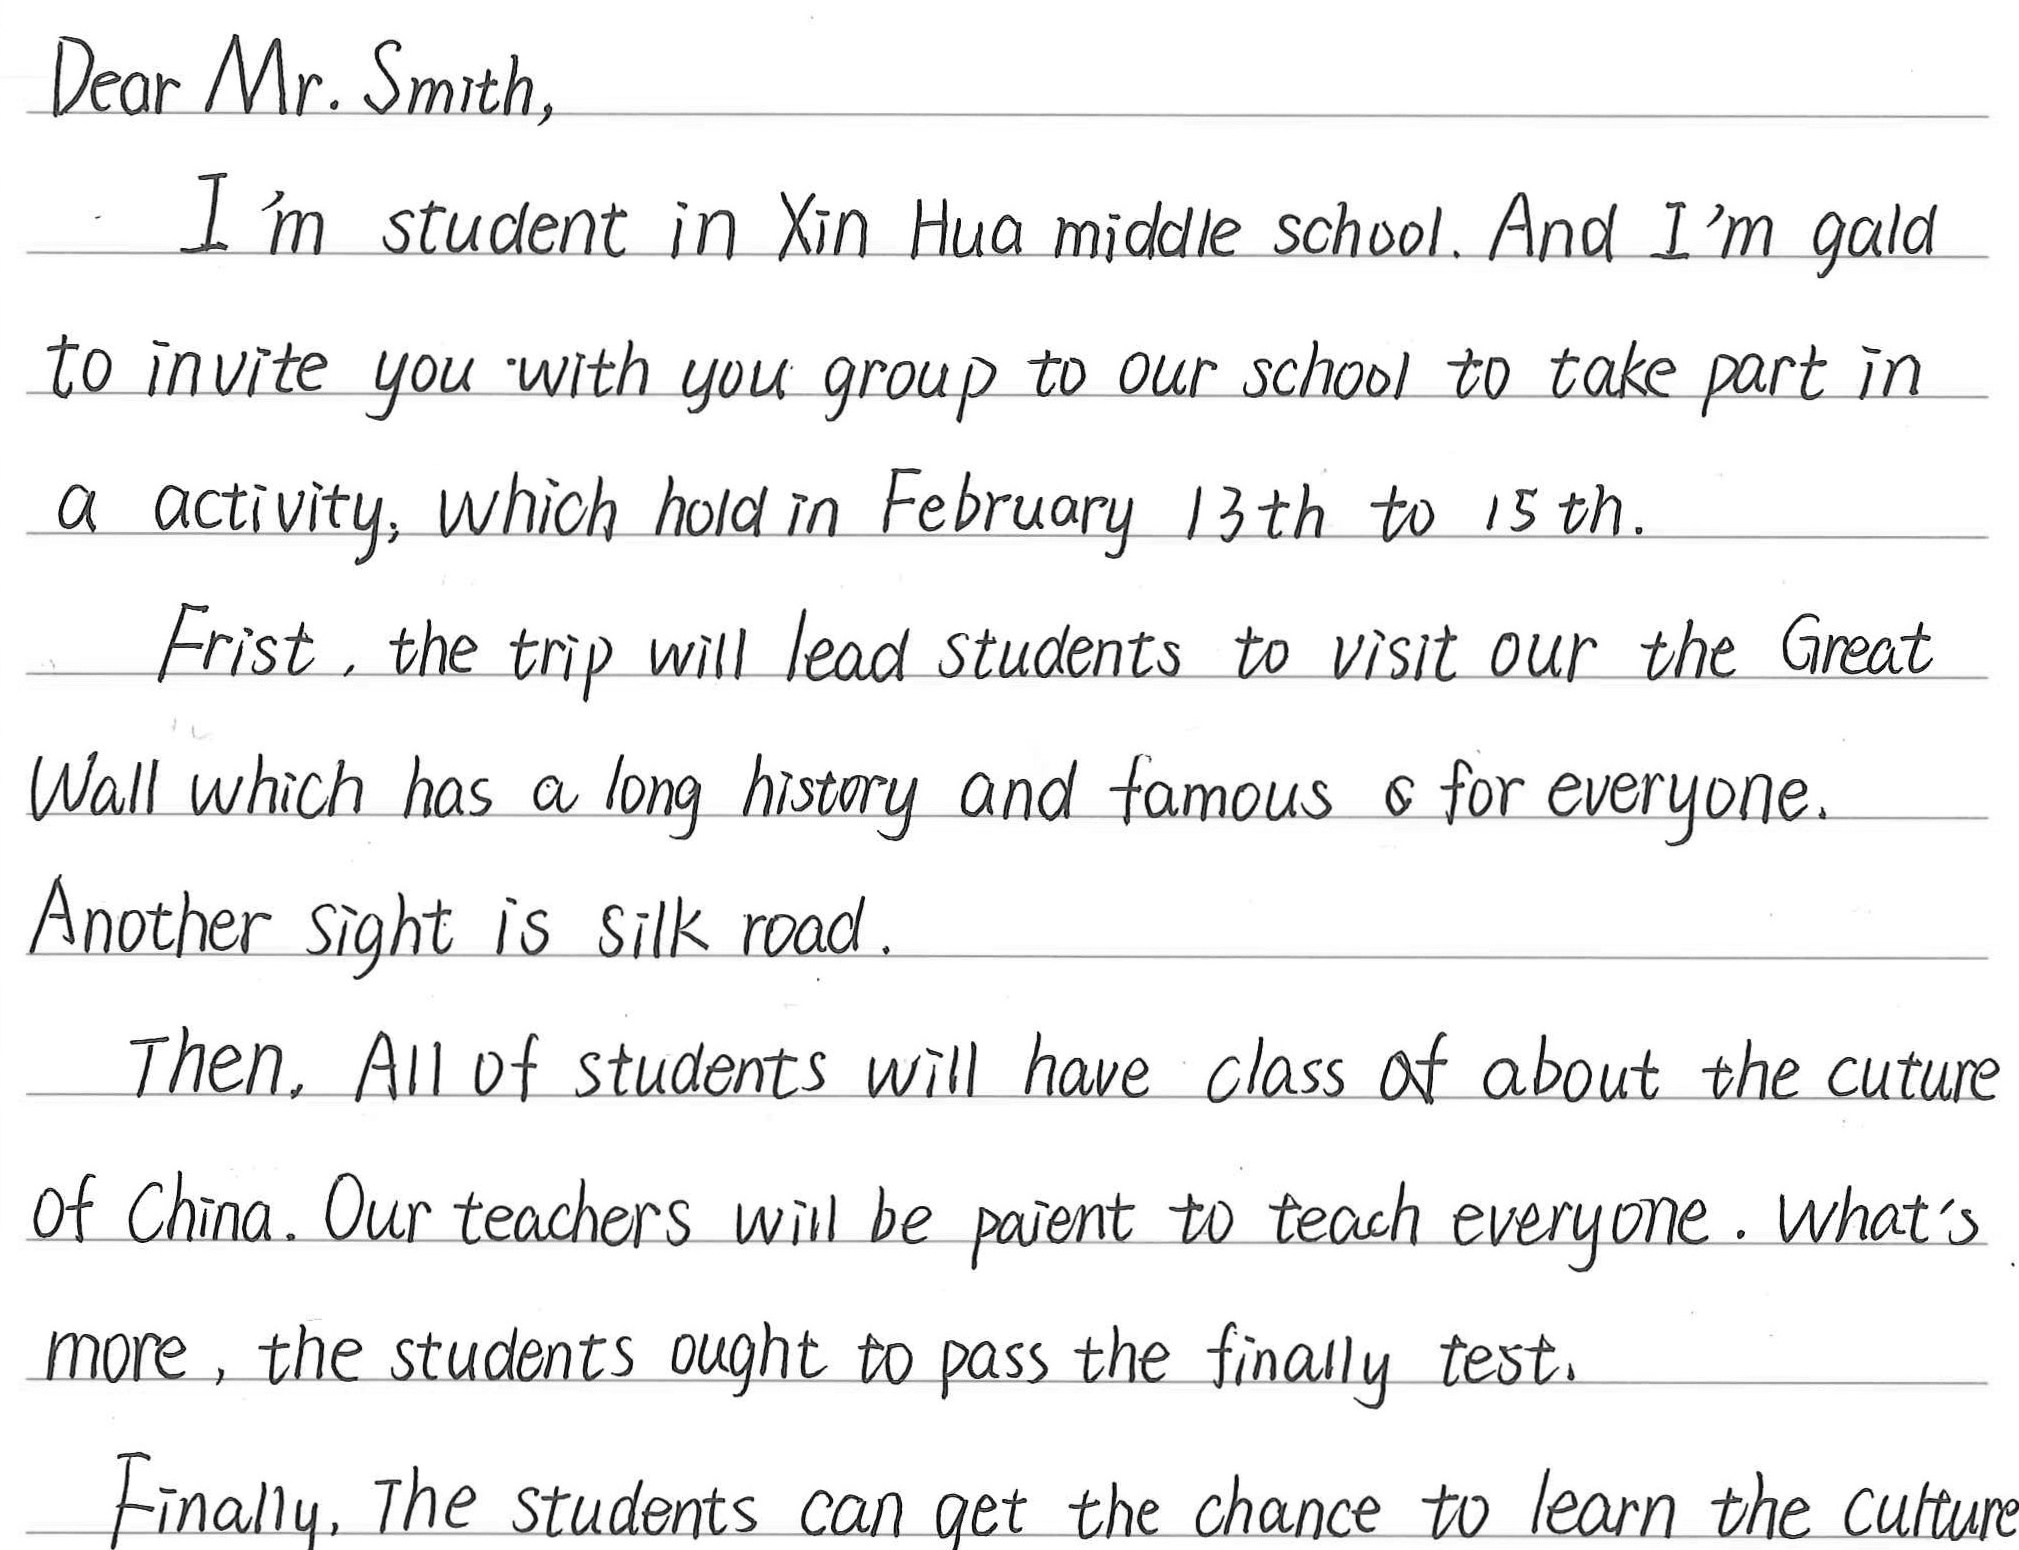 Dear Mr. Smith,
I'm student in Xin Hua middle school. And I'm gald
to invite you with you group to our school to take part in
a activity, which hold in February 13th to 15th.
Frist, the trip will lead students to visit our the Great
Wall which has a long history and famous for everyone.
Another sight is silk road.
Then, All of students will have class of about the cuture
of China. Our teachers will be paient to teach everyone. What's
more, the students ought to pass the finally test.
Finally, The students can get the chance to learn the culture